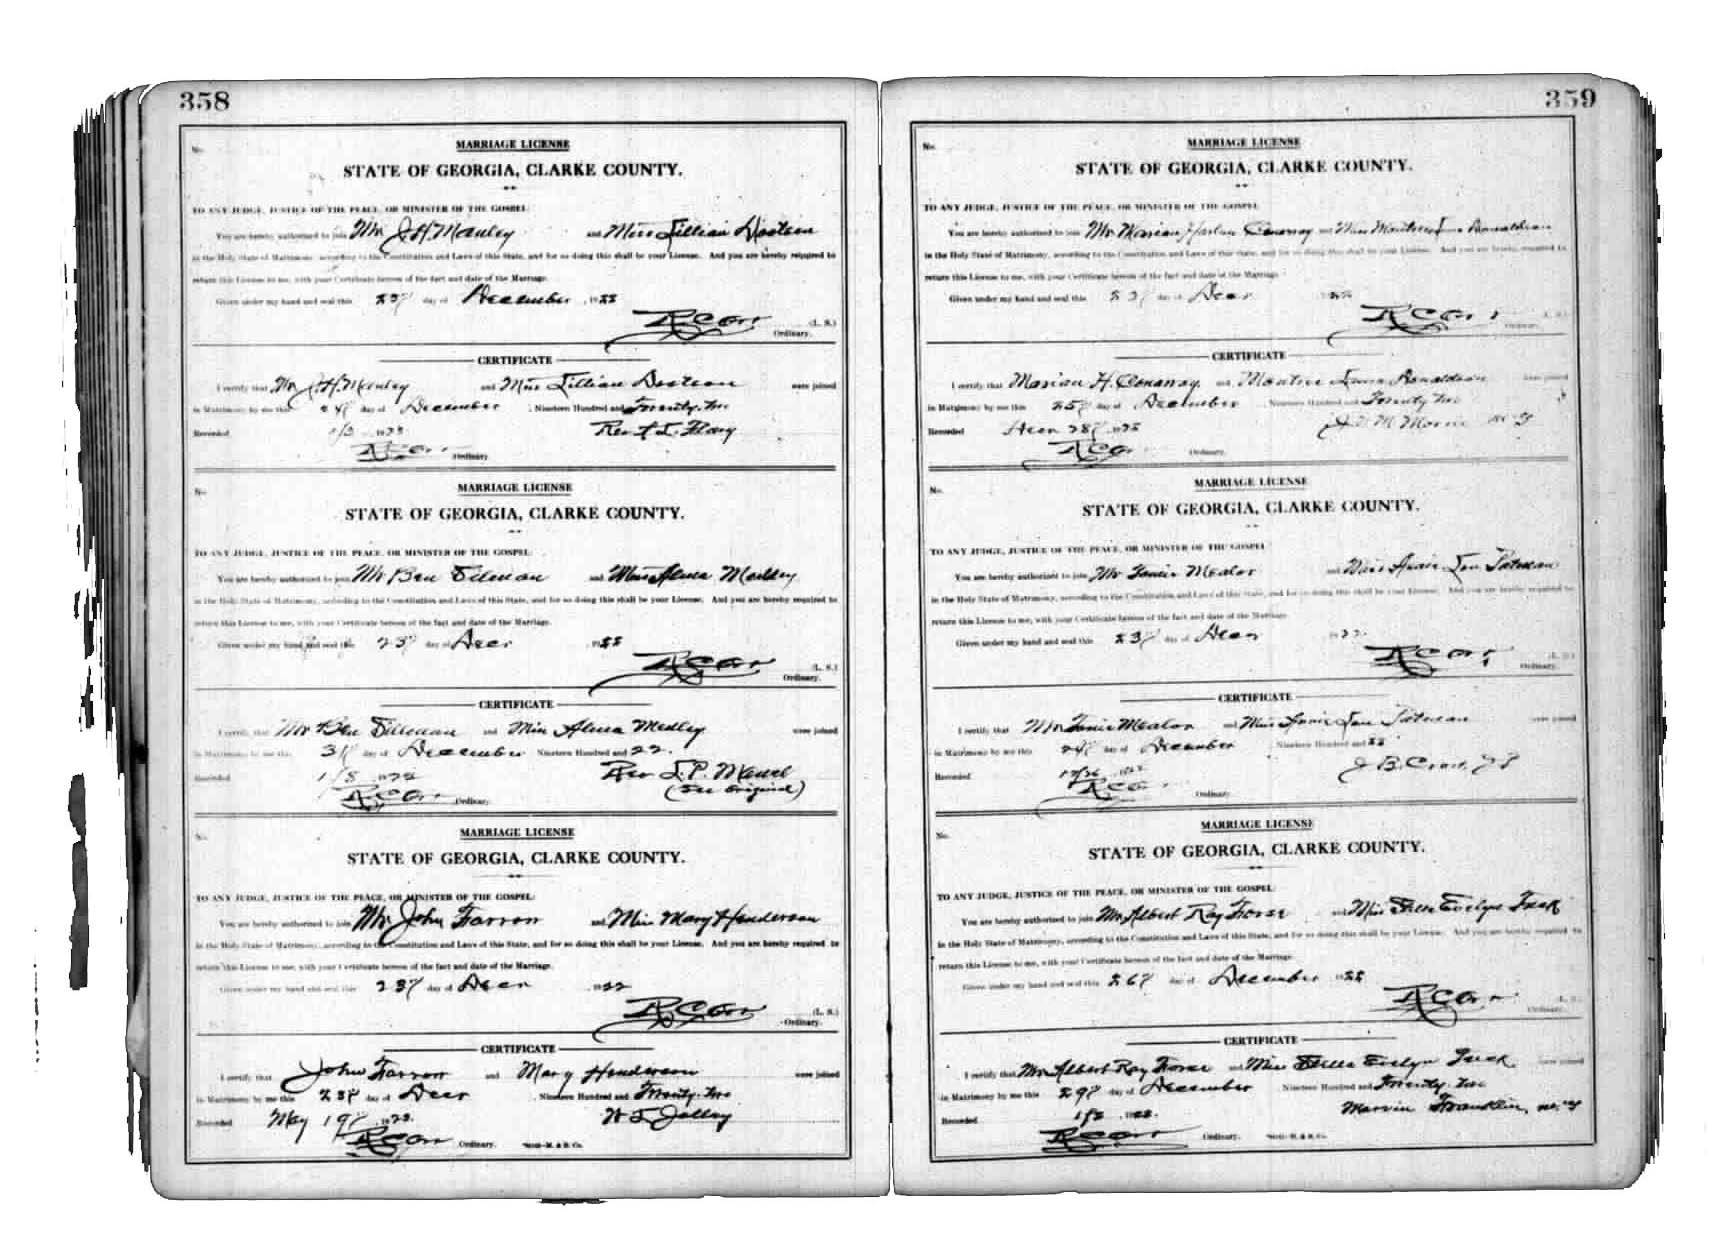 358
No.
MARRIAGE LICENSE
STATE OF GEORGIA, CLARKE COUNTY.
TO ANY JUDGE, JUSTICE OF THE PEACE, OR MINISTER OF THE GOSPEL:
You are hereby authorized to join Mr. J.H. Manley and Miss Lillian
in the Holy State of Matrimony, according to the Constitution and Laws of this State, and for so doing this shall be your License. And you are hereby required to
return this License to me, with your Certificate hereon of the fact and date of the Marriage.
Given under my hand and seal this 23 day of December, 1922
R C Orr (L. S.)
Ordinary.
CERTIFICATE
I certify that Mr. J.H. Manley and Miss Lillian were joined
in Matrimony by me this 24 day of December, Nineteen Hundred and Twenty-two
Recorded 1/3 192 Rev.
R C Orr Ordinary.
No.
MARRIAGE LICENSE
STATE OF GEORGIA, CLARKE COUNTY.
TO ANY JUDGE, JUSTICE OF THE PEACE, OR MINISTER OF THE GOSPEL:
You are hereby authorized to join Mr. Ben and Miss Alma Medley
in the Holy State of Matrimony, according to the Constitution and Laws of this State, and for so doing this shall be your License. And you are hereby required to
return this License to me, with your Certificate hereon of the fact and date of the Marriage.
Given under my hand and seal this 23 day of Decr 1922
R C Orr (L. S.)
Ordinary.
CERTIFICATE
I certify that Mr. Ben and Miss Alma Medley were joined
in Matrimony by me this 31 day of December Nineteen Hundred and 22.
Recorded 1/8 192 Rev
R C Orr Ordinary. (See Original)
No.
MARRIAGE LICENSE
STATE OF GEORGIA, CLARKE COUNTY.
TO ANY JUDGE, JUSTICE OF THE PEACE, OR MINISTER OF THE GOSPEL:
You are hereby authorized to join Mr. John Farrow and Miss Mary Henderson
in the Holy State of Matrimony, according to the Constitution and Laws of this State, and for so doing this shall be your License. And you are hereby required to
return this License to me, with your Certificate hereon of the fact and date of the Marriage.
Given under my hand and seal this 23 day of Decr 1922
R C Orr (L. S.)
Ordinary.
CERTIFICATE
I certify that John Farrow and Mary Henderson were joined
in Matrimony by me this 23 day of Decr, Nineteen Hundred and Twenty-two
Recorded May 19 192 W L Jolley
R C Orr Ordinary.
359
No.
MARRIAGE LICENSE
STATE OF GEORGIA, CLARKE COUNTY.
TO ANY JUDGE, JUSTICE OF THE PEACE, OR MINISTER OF THE GOSPEL:
You are hereby authorized to join Mr. Marion Harlan Conaway and Miss Donaldson
in the Holy State of Matrimony, according to the Constitution and Laws of this State, and for so doing this shall be your License. And you are hereby required to
return this License to me, with your Certificate hereon of the fact and date of the Marriage.
Given under my hand and seal this 23 day of Decr 1922
R C Orr (L. S.)
Ordinary.
CERTIFICATE
I certify that Marion H. Conaway and Donaldson were joined
in Matrimony by me this 25 day of December, Nineteen Hundred and Twenty two
Recorded Decr 28 192
R C Orr Ordinary.
No.
MARRIAGE LICENSE
STATE OF GEORGIA, CLARKE COUNTY.
TO ANY JUDGE, JUSTICE OF THE PEACE, OR MINISTER OF THE GOSPEL:
You are hereby authorized to join Mr. Mealor and Miss Lou
in the Holy State of Matrimony, according to the Constitution and Laws of this State, and for so doing this shall be your License. And you are hereby required to
return this License to me, with your Certificate hereon of the fact and date of the Marriage.
Given under my hand and seal this 23 day of Decr 1922
R C Orr (L. S.)
Ordinary.
CERTIFICATE
I certify that Mr. Mealor and Miss Lou were joined
in Matrimony by me this 24 day of December, Nineteen Hundred and 22
Recorded 12/26 1922 J. B.
R C Orr Ordinary.
No.
MARRIAGE LICENSE
STATE OF GEORGIA, CLARKE COUNTY.
TO ANY JUDGE, JUSTICE OF THE PEACE, OR MINISTER OF THE GOSPEL:
You are hereby authorized to join Mr. Albert Ray and Miss Evelyn Tuck
in the Holy State of Matrimony, according to the Constitution and Laws of this State, and for so doing this shall be your License. And you are hereby required to
return this License to me, with your Certificate hereon of the fact and date of the Marriage.
Given under my hand and seal this 26 day of December 1922
R C Orr (L. S.)
Ordinary.
CERTIFICATE
I certify that Mr. Albert Ray and Miss Evelyn Tuck were joined
in Matrimony by me this 29 day of December, Nineteen Hundred and Twenty-two
Recorded 1/2 192 Marvin Franklin, M.G.
R C Orr Ordinary.